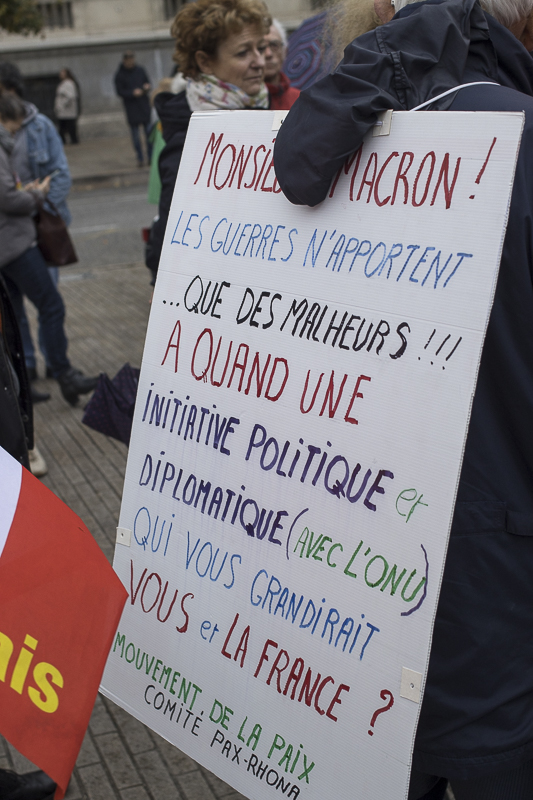 MONSIE MACRON!
LES GUERRES N'APPORTENT
...QUE DES MALHEURS!!!
A QUAND UNE
iNiTiATiVE POLiTiQUE et
DiPLOMATiQUE (AVEC L'ONU)
QUi VOUS GRANDiRAiT
VOUS et LA FRANCE ?
MOUVEMENT DE LA PAiX
COMiTÉ PAX-RHONA
ais